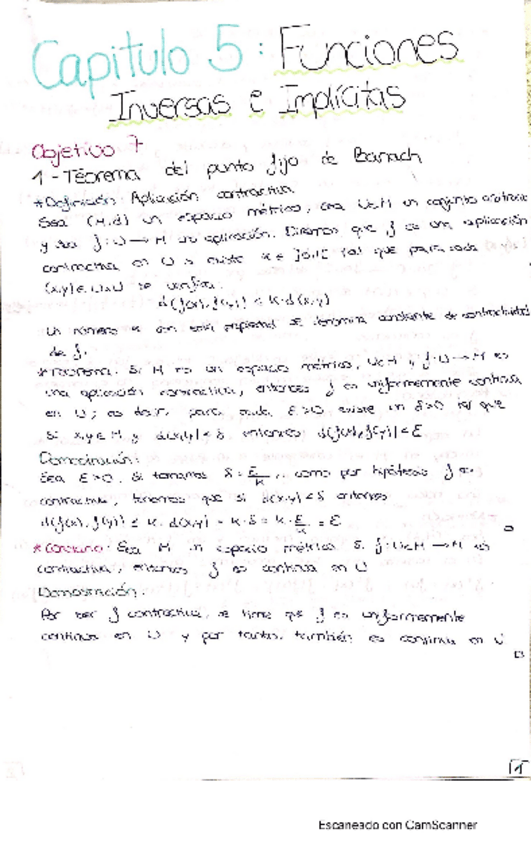 Capitulo 5: Funciones
Inversas e Implícitas
Objetivo 7
1-Teorema del punto fijo de Banach
*Definición: Aplicación contractiva
Sea (M,d) un espacio métrico, sea U⊂M un conjunto arbitrario
y sea f:U→M una aplicación. Diremos que f es una aplicación
contractiva en U si existe k ∈ ]0,1[ tal que para cada
(x,y)∈UxU se verifica:
d(f(x),f(y)) ≤ k·d(x,y)
Un número k con esta propiedad se denomina constante de contractividad
de f.
*Teorema: Si M es un espacio métrico, U⊂M y f:U→M es
una aplicación contractiva, entonces f es uniformemente continua
en U; es decir, para cada ε>0 existe un δ>0 tal que
si x,y∈M y d(x,y)<δ entonces d(f(x),f(y))<ε
Demostración:
Sea ε>0. Si tomamos δ=ε/k, como por hipótesis f es
contractiva, tenemos que si d(x,y)<δ entonces
d(f(x),f(y)) ≤ k·d(x,y) = k·δ = k·ε/k = ε
*Corolario: Sea M un espacio métrico. Si f:U⊂M→M es
contractiva, entonces f es continua en U
Demostración:
Por ser f contractiva, se tiene que f es uniformemente
continua en U y por tanto, también es continua en U
1
Escaneado con CamScanner